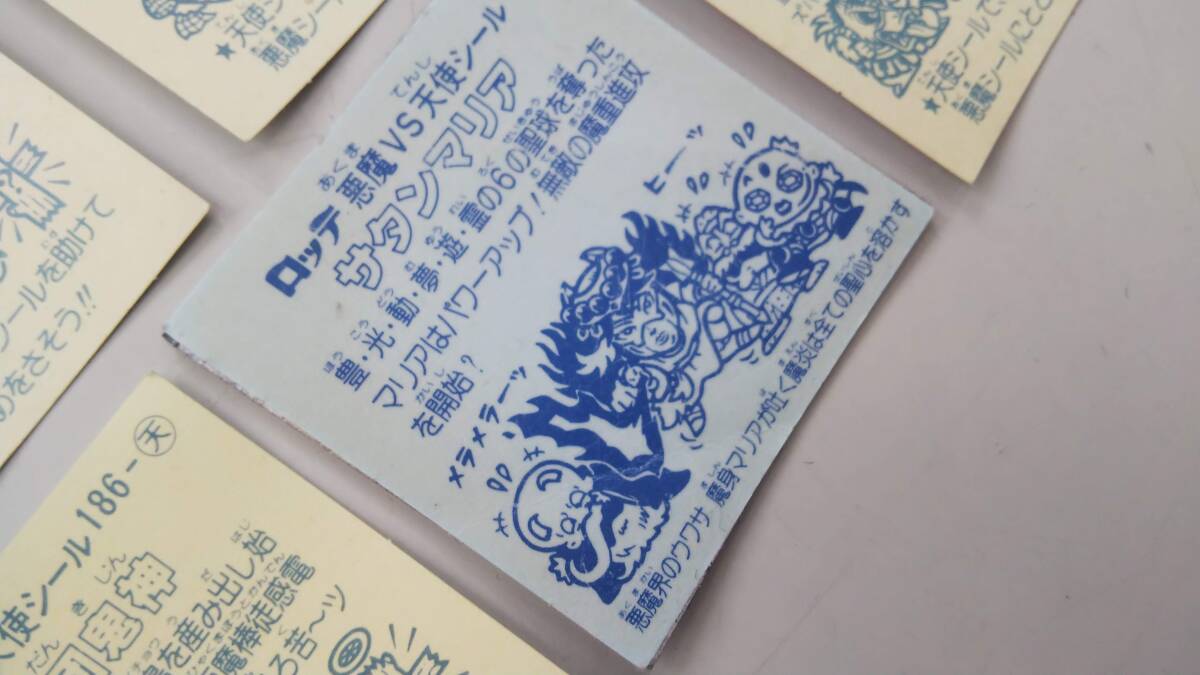 ロッテ 悪魔VS天使シール
サタンマリア
豊・光・動・夢・遊・霊の6の聖球を奪った
マリアはパワーアップ!無敵の魔重進攻
を開始?
ヒーッ
メラメラーッ
悪魔界のウワサ 魔身マリアが吐く魔炎は全ての聖心を溶かす
★天使シ
悪魔シー
★天使シールでい
悪魔シールにとど
シールを助けて
めをさそう!!
天使シール186-天
鬼神
を産み出し始
魔棒徒感電
ろ苦~ツ